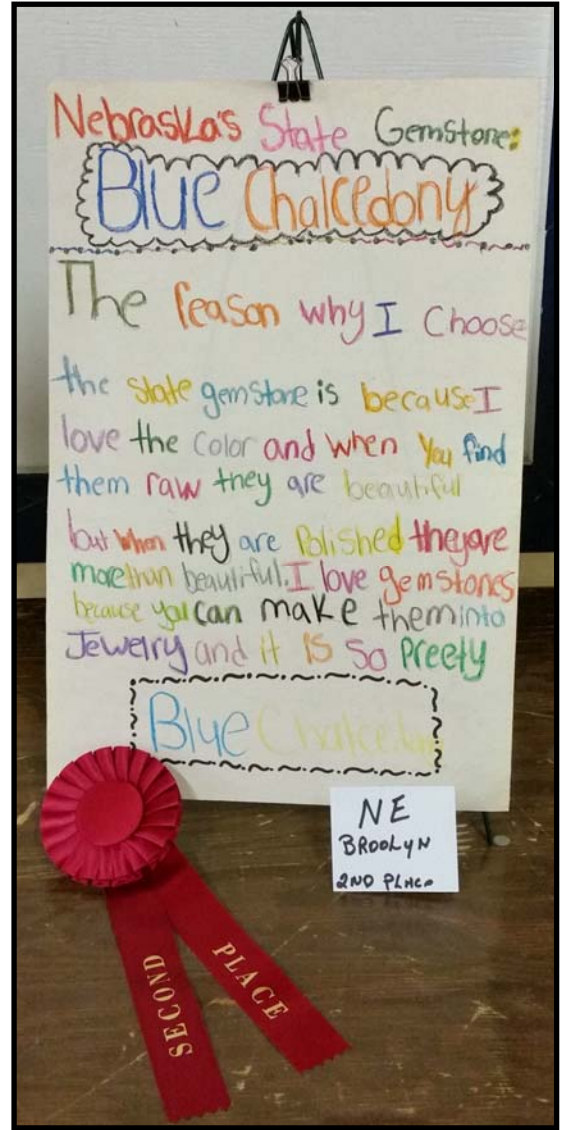 Nebraska's State Gemstone:
Blue Chalcedony
The reason why I choose
the state gemstone is because I
love the color and when you find
them raw they are beautiful
but when they are Polished they are
more than beautiful. I love gemstones
because you can make them into
Jewelry and it is so preety
Blue Chalcedony
NE
BROOLYN
2ND PLACE
SECOND
PLACE